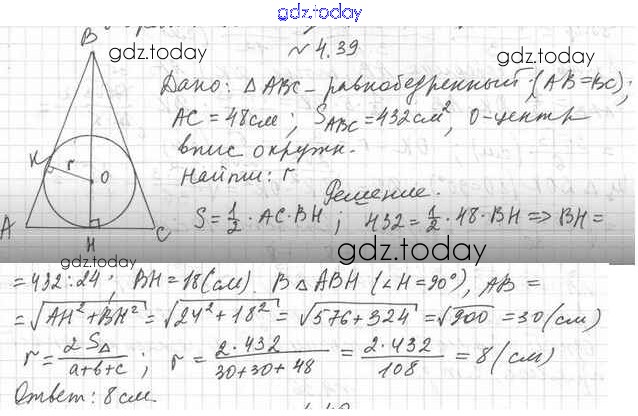 gdz.today
B
gdz.today
№ 4.39
Дано: △ABC - равнобедренный; (AB=BC);
AC = 48 см; S_ABC = 432 см², O-центр
впис окружн.
gdz.today
Найти: r
K
r
O
A
H
C
Решение.
S = 1/2 · AC · BH ; 432 = 1/2 · 48 · BH => BH =
gdz.today
gdz.today
= 432 : 24 ; BH = 18 (см). В △ ABH (∠H = 90°), AB =
= √AH² + BH² = √24² + 18² = √576 + 324 = √900 = 30 (см)
r = 2S△/a+b+c ; r = 2·432/30+30+48 = 2·432/108 = 8 (см)
Ответ: 8 см.